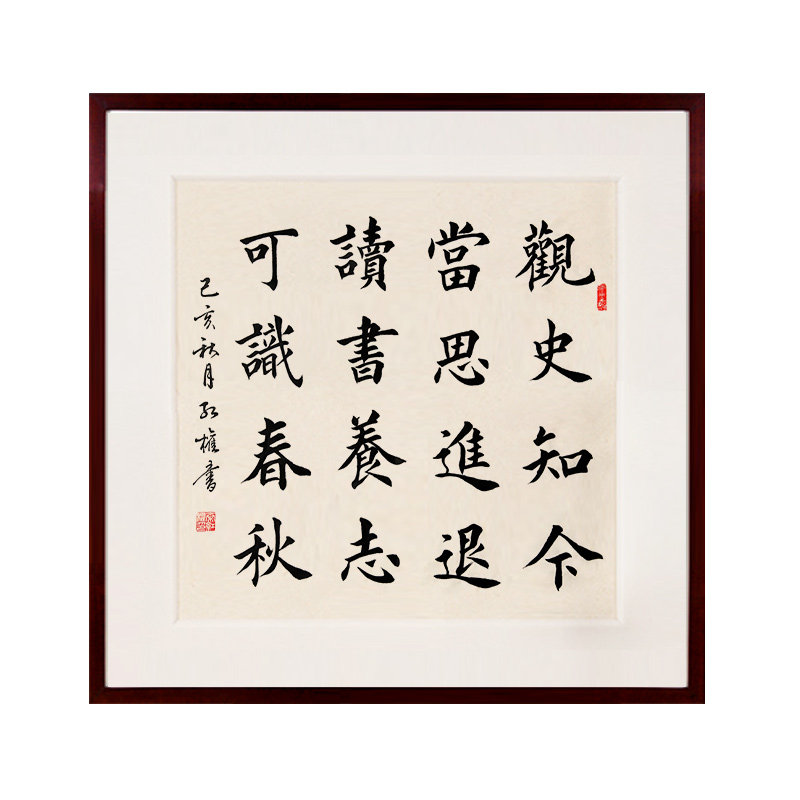 觀史知今
當思進退
讀書養志
可識春秋
己亥秋月紅權書